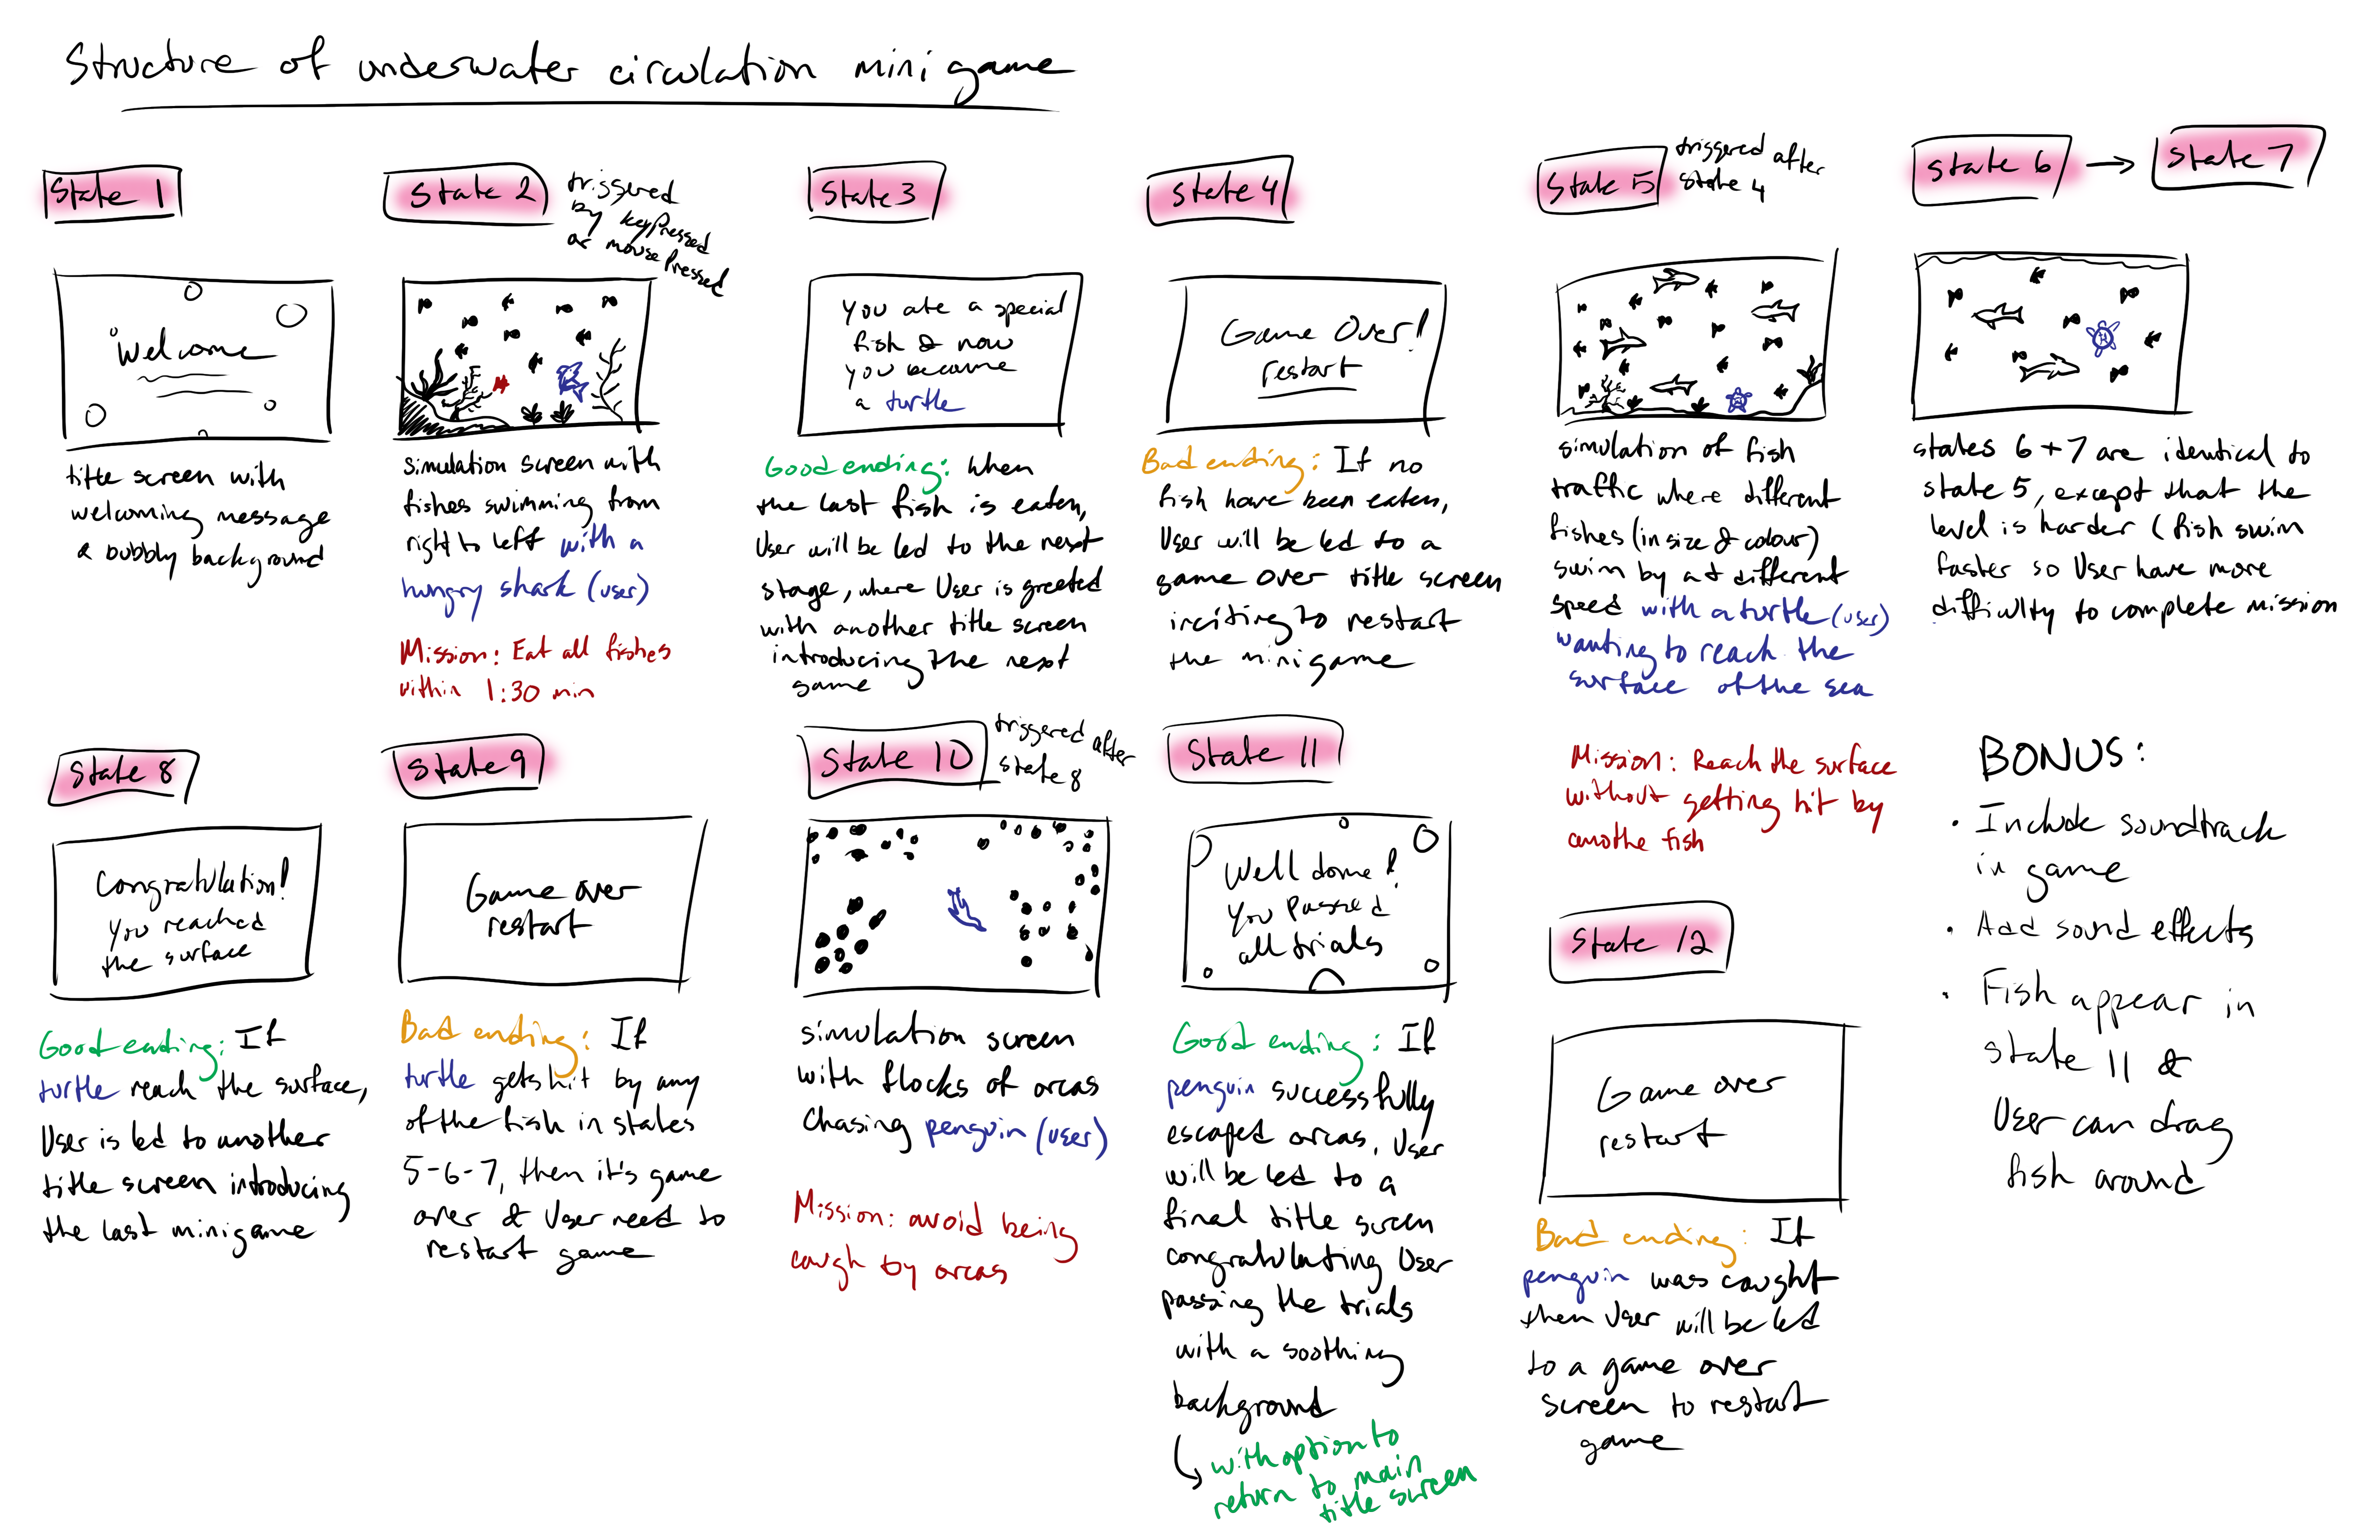 Structure of underwater circulation minigame
State 1
Welcome
title screen with
welcoming message
& bubbly background
State 2
triggered
by keyPressed
or mousePressed
simulation screen with
fishes swimming from
right to left with a
hungry shark (user)
Mission: Eat all fishes
within 1:30 min
State 3
You ate a special
fish & now
you become
a turtle
Good ending: When
the last fish is eaten,
User will be led to the next
stage, where User is greeted
with another title screen
introducing the next
game
State 4
Game Over!
restart
Bad ending: If no
fish have been eaten,
User will be led to a
game over title screen
inciting to restart
the minigame
State 5
triggered after
state 4
simulation of fish
traffic where different
fishes (in size & colour)
swim by at different
speed with a turtle (user)
wanting to reach the
surface of the sea
Mission: Reach the surface
without getting hit by
anothe fish
State 6 → State 7
states 6+7 are identical to
state 5, except that the
level is harder (fish swim
faster so User have more
difficulty to complete mission
State 8
Congratulation!
You reached
the surface
Good ending: If
turtle reach the surface,
User is led to another
title screen introducing
the last minigame
State 9
Game over
restart
Bad ending: If
turtle gets hit by any
of the fish in states
5-6-7, then it's game
over & User need to
restart game
State 10
triggered after
state 8
simulation screen
with flocks of orcas
chasing penguin (user)
Mission: avoid being
caugh by orcas
State 11
Well done!
You passed
all trials
Good ending: If
penguin successfully
escaped orcas, User
will be led to a
final title screen
congratulating User
passing the trials
with a soothing
background
with option to
return to main
title screen
State 12
Game over
restart
Bad ending: If
penguin was caught
then User will be led
to a game over
screen to restart
game
BONUS:
• Include soundtrack
in game
• Add sound effects
• Fish appear in
state 11 &
User can drag
fish around